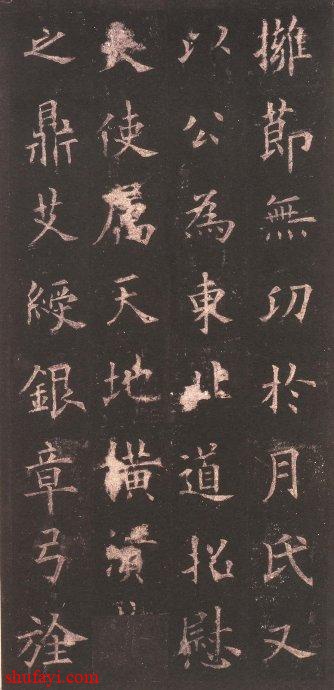 擁節無功於月氏又
以公為東北道招慰
大使属天地橫濆
之鼎艾綬銀章弓旌
shufayi.com